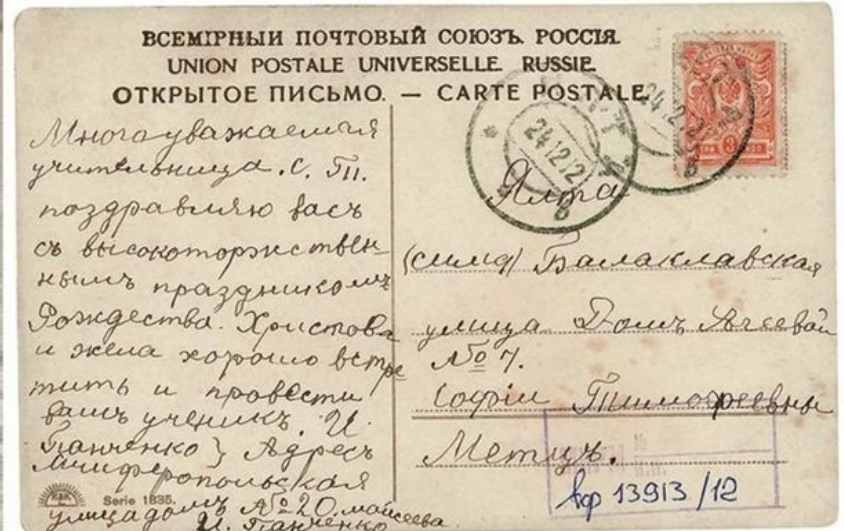 ВСЕМІРНЫЙ ПОЧТОВЫЙ СОЮЗЪ. РОССІЯ.
UNION POSTALE UNIVERSELLE. RUSSIE.
ОТКРЫТОЕ ПИСЬМО. — CARTE POSTALE.
Многоуважаемая
учительница. С. Ти.
поздравляю васъ
съ высокоторжествен-
нымъ праздникомъ
Рождества. Христова
и жела хорошо встре
тить и провести
вашъ ученикъ. И.
Панченко} Адресъ
Симферопольская
улица домъ №20. моисеева
И. Панченко
Serie 1835.
ЯЛТА
24 12 12
в
24 12
в
ТРИ 3 КОП
Ялта
Балаклавская
улица Домъ
№ 7.
Софіи Тимофеевны
Метцъ.
вф 13913/12